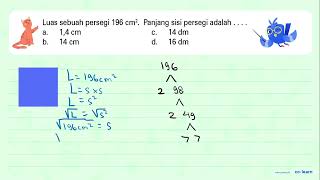 Luas sebuah persegi 196 cm². Panjang sisi persegi adalah . . . .
a. 1,4 cm c. 14 dm
b. 14 cm d. 16 dm
L = 196 cm²
L = s × s
L = s²
√L = √s²
√196cm² = s
196
2 98
2 49
7 7